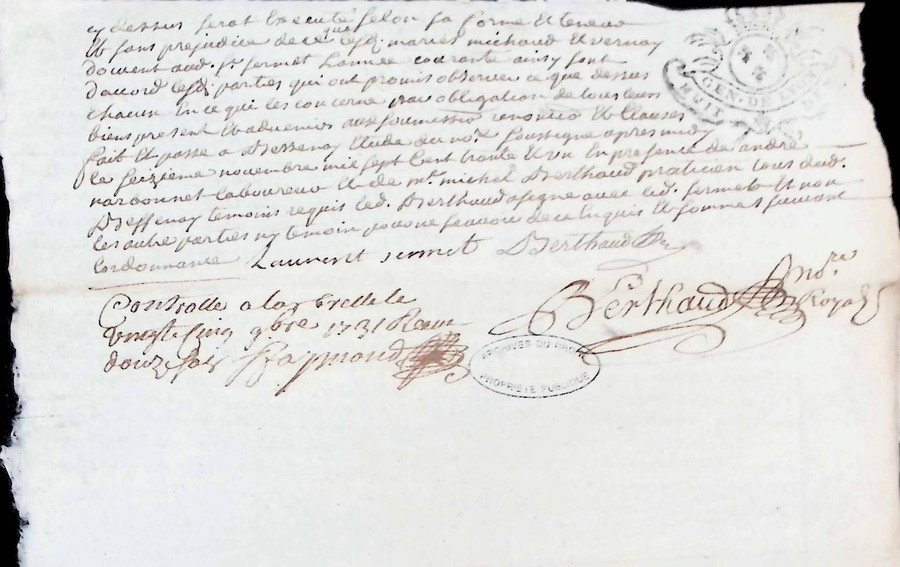 cy dessus serat Executé selon sa forme et teneur
et sans prejudice de ce que lesd. mariés michaud et vernay
doivent aud. Sr. fermet Lannée courante ainsy sont
d'accord lesd. parties qui ont promis observer ce que dessus
chacun En ce qui les concerne par obligation de tous leurs
biens present et advenirs aux soumessio. renontio. et clauses
fait et passé a Dessenay Etude du no.re soussigné apres midy
le seizieme novembre mil sept Cent trente et un En presence de andré
narbonnet laboureur et de Me. michel Berthaud praticien tous dud.
Dessenay temoins requis led. Berthaud a signé avec led. fermet et non
les autre parties ny temoin pour ne scavoir de ce Enquis et sommés suivant
Lordonnance Laurent Fermet Berthaud
GEN. DE LYON
HUIT DE
Controlle a
vingt cinq 9bre 1731 Recu
douze sols Raymond
Berthaud no.re Royal
ARCHIVES DU
PROPRIÉTÉ PUBLIQUE